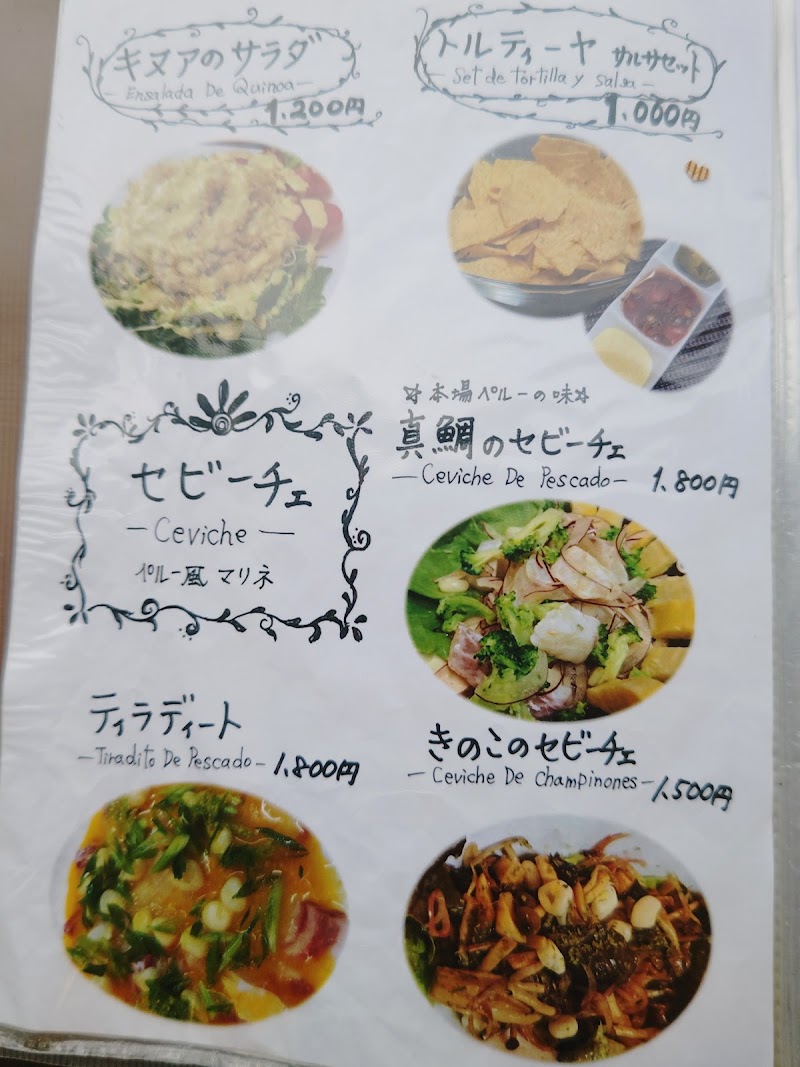 キヌアのサラダ
- Ensalada De Quinoa -
1.200円
トルティーヤ サルサセット
- Set de tortilla y salsa -
1.000円
本場ペルーの味
真鯛のセビーチェ
- Ceviche De Pescado -
1.800円
セビーチェ
- Ceviche -
ペルー風 マリネ
ティラディート
- Tiradito De Pescado -
1.800円
きのこのセビーチェ
- Ceviche De Champinones -
1.500円